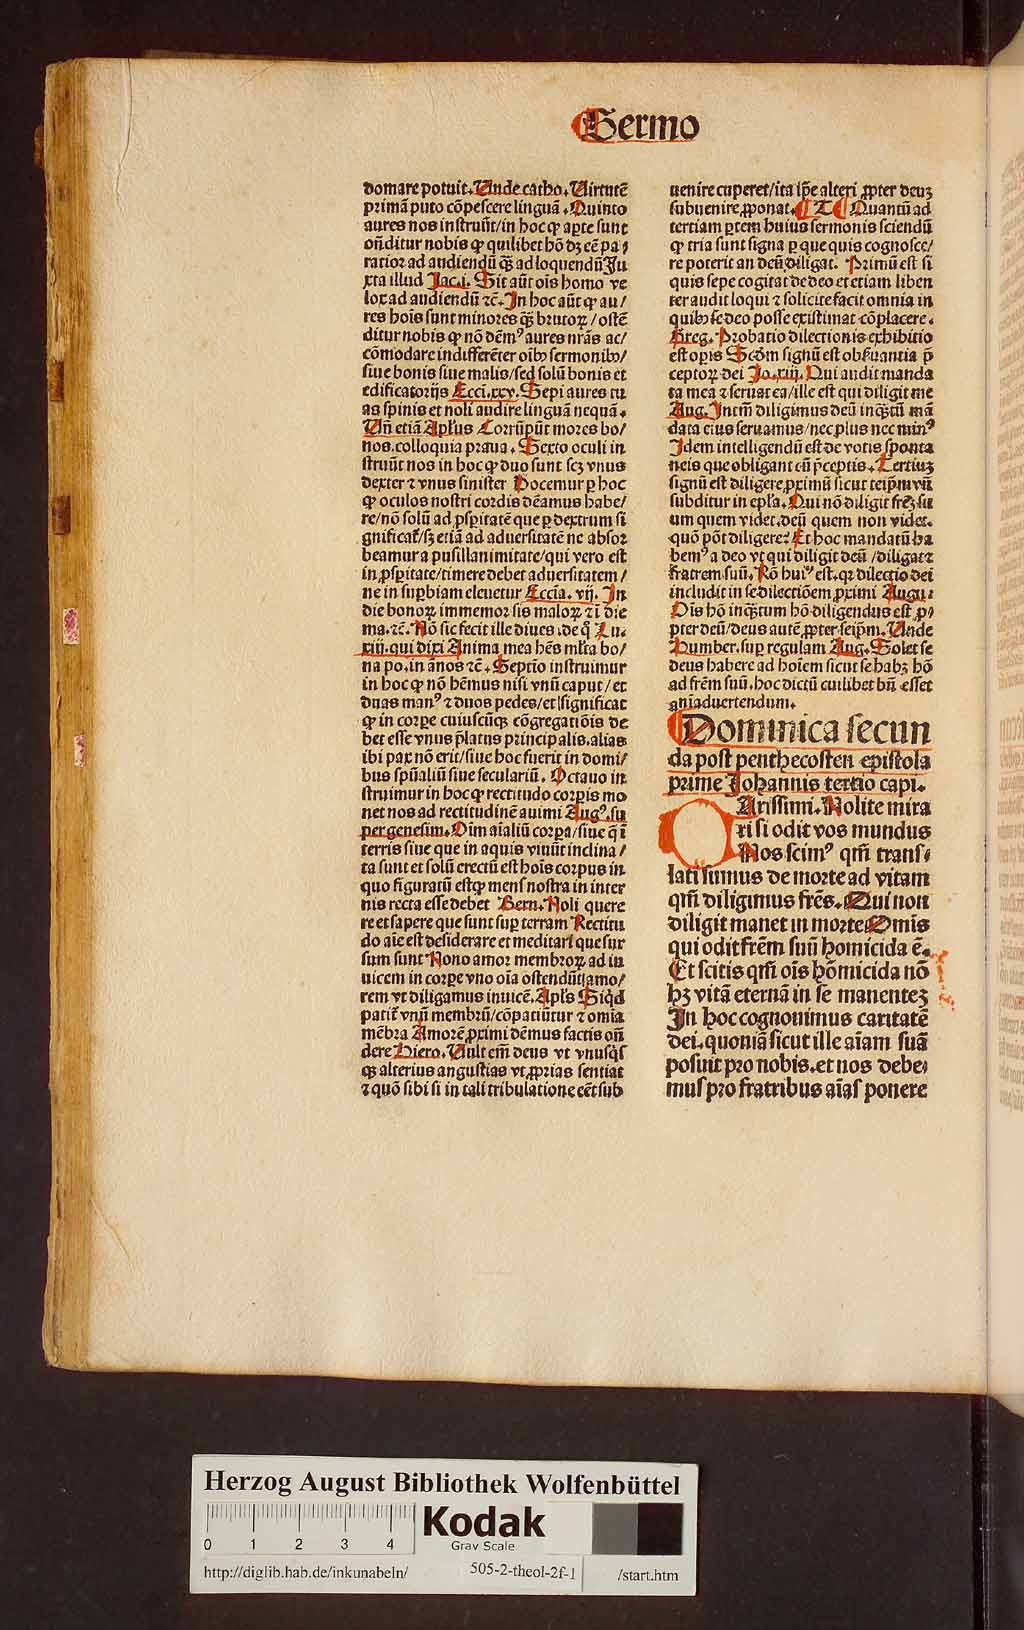 Sermo
domare potuit. Unde catho. Uirtutē
primā puto cōpescere linguā. Quinto
aures nos instruūt/in hoc ꝙ aperte sunt
oñditur nobis ꝙ quilibet hō dꝫ eē pa⸗
ratior ad audiendū qȝ̃ ad loquendū Ju
xta illud Jac.i. Sit aūt oīs homo ve
lox ad audiendū ⁊c̄. In hoc aūt ꝙ au/
res hoīs sunt minores qȝ̃ brutoꝝ/ostē
ditur nobis ꝙ nō dēmꝰ aures nr̄as ac/
cōmodare indifferēter oībꝰ sermonibꝰ/
siue bonis siue malis/sed solū bonis et
edificatorijs Ecci.xxv. Sepi aures tu
as spinis et noli audire linguā nequā.
Uñ etiā Apl̄us Corrūpūt mores bo/
nos.colloquia praua. Sexto oculi in
struūt nos in hoc ꝙ duo sunt scꝫ vnus
dexter ⁊ vnus sinister Docemur ꝑ hoc
ꝙ oculos nostri cordis dēamus habe/
re/nō solū ad ꝓsꝑitatē que ꝑ dextrum si
gnificat̄/sꝫ etiā ad aduersitatē ne absor
beamur a pusillanimitate/qui vero est
in ꝓsꝑitate/timere debet aduersitatem/
ne in suꝑbiam eleuetur Eccia. vij. In
die bonoꝝ immemor sis maloꝝ ⁊ ī die
ma.⁊c̄. Nō sic fecit ille diues .de q̊ Lu.
xiii.qui dixi Anima mea hēs ml̄ta bo/
na po.in ānos ⁊c̄. Septīo instruimur
in hoc ꝙ nō hēmus nisi vnū caput/et
duas manꝰ ⁊ duos pedes/et significat
ꝙ in corꝑe cuiuscūqȝ cōgregatiōis de
bet esse vnus p̄latus principalis.alias
ibi pax nō erit/siue hoc fuerit in domi/
bus spūaliū siue seculariū. Octauo in
struimur in hoc ꝙ rectitudo corꝑis mo
net nos ad rectitudinē animi Augꝰ.su
per genesim. Oīm aīaliū corꝑa/siue q̄ ī
terris siue que in aquis viuūt inclina/
ta sunt et solū erectū est hoīs corpus in
quo figuratū est ꝙ mens nostra in inter
nis recta esse debet Bern. Noli quere
re et sapere que sunt suꝑ terram Rectitu
do aīe est desiderare et meditari que sur
sum sunt Nono amor membroꝝ ad in
uicem in corꝑe vno oīa ostendūt/amo/
rem vt diligamus inuicē. Apl̄s Siqd̓
patit̄ vnū membrū/cōpatiūtur ⁊ omīa
mēbra Amorē ꝓximi dēmus factis oñ
dere Hiero. Uult em̄ deus vt vnusq̓sqȝ
alterius angustias vt ꝓprias sentiat
⁊ quō sibi si in tali tribulatione eēt sub
uenire cuperet/ita ip̄e alteri ꝓpter deuꝫ
subuenire ꝓponat. T Quantū ad
tertiam ꝑtem huius sermonis sciendū
ꝙ tria sunt signa ꝑ que quis cognosce/
re poterit an deū diligat. Primū est si
quis sepe cogitat de deo et etiam liben
ter audit loqui ⁊ solicite facit omnia in
quibꝰ se deo posse existimat cōplacere.
Greg. Probatio dilectionis exhibitio
est oꝑis Scd̓m signū est obẜuantia p̄
ceptoꝝ dei Jo.xiij. Qui audit manda
ta mea ⁊ seruat ea/ille est qui diligit me
Aug. Intm̄ diligimus deū inqȝ̃tū mā
data eius seruamus/nec plus nec minꝰ
Idem intelligendū est de votis sponta
neis que obligant cū p̄ceptis. Tertiuꝫ
signū est diligere ꝓximū sicut teip̄m vñ
subditur in ep̄la. Qui nō diligit frēꝫ su
um quem videt.deū quem non videt.
quō pōt diligere? Et hoc mandatū ha
bemꝰ a deo vt qui diligit deū /diligat ⁊
fratrem suū. Rō huiꝰ est.qꝛ dilectio dei
includit in se dilectiōem ꝓximi Augu.
Ois hō inqȝ̃tum hō diligendus est ꝓ⸗
pter deū/deus autē ꝓpter seip̄m. Unde
Humber.suꝑ regulam Aug. Solet se
deus habere ad hoīem sicut se habꝫ hō
ad frēm suū.hoc dictū cuilibet bñ esset
aniaduertendum.
Dominica secun
da post penthecosten epistola
prime Johannis tertio capi.
Arissimi. Nolite mira
ri si odit vos mundus
Nos scimꝰ qm̄ trans⸗
lati sumus de morte ad vitam
qm̄ diligimus frēs. Qui non
diligit manet in morte Omīs
qui odit frēm suū homicida ē.
Et scitis qm̄ oīs hōmicida nō
hꝫ vitā eternā in se manenteꝫ
In hoc cognouimus caritatē
dei.quoniā sicut ille aīam suā
posuit pro nobis.et nos debe⸗
mus pro fratribus aīas ponere
Herzog August Bibliothek Wolfenbüttel
0 1 2 3 4
Kodak
Gray Scale
http://diglib.hab.de/inkunabeln/ 505-2-theol-2f-1 /start.htm